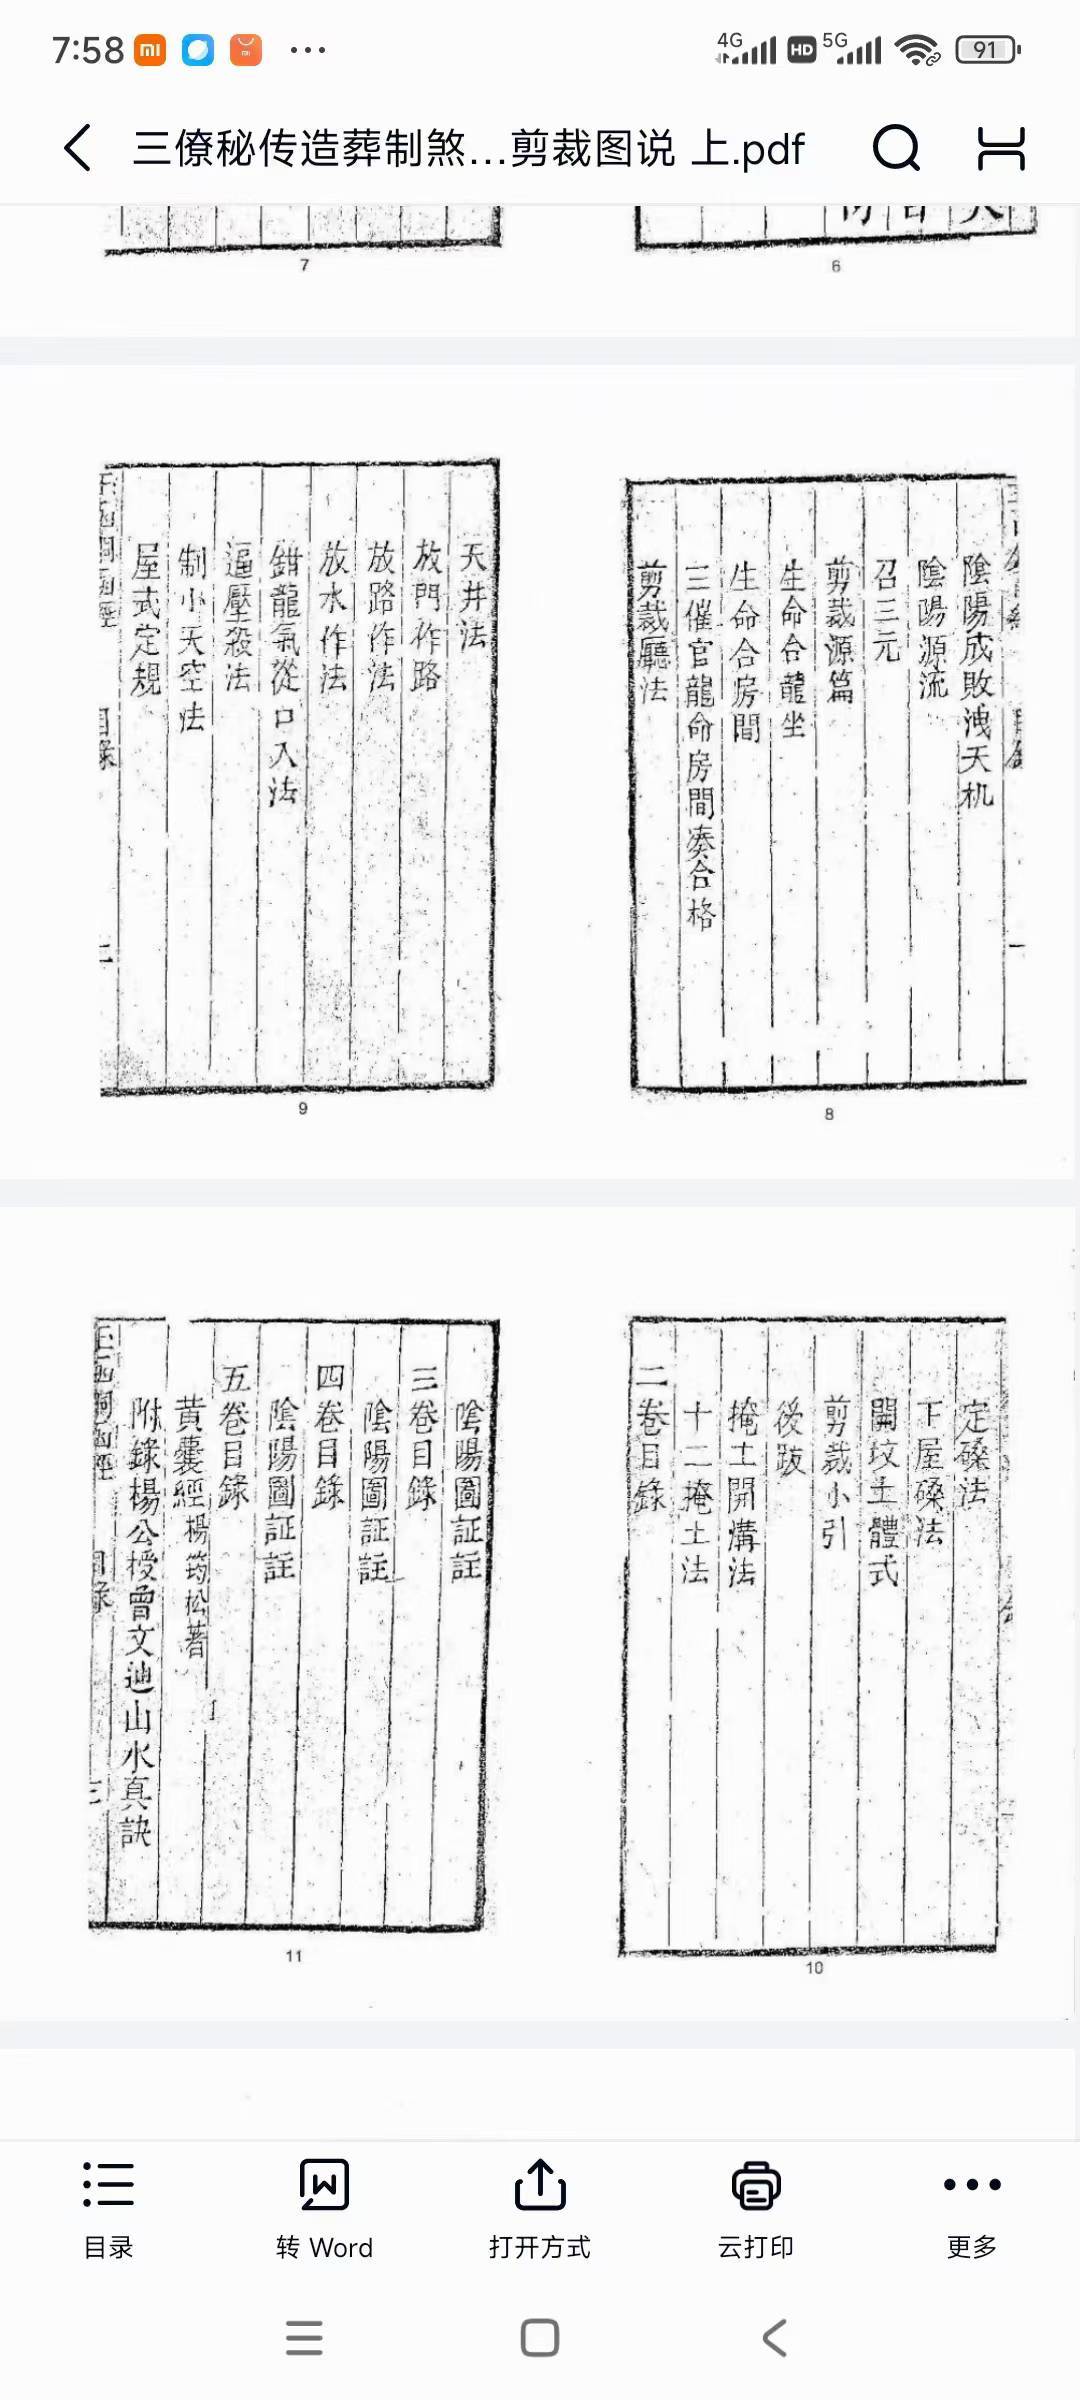 7:58
4G
HD
5G
91
三僚秘传造葬制煞...剪裁图说 上.pdf
7
6
陰陽成敗洩天机
陰陽源流
召三元
剪裁源篇
生命合龍坐
生命合房間
三催官龍命房間湊合格
剪裁廳法
8
天井法
放門作路
放路作法
放水作法
鉗龍氣從口入法
逼壓殺法
制小天空法
屋式定規
目錄
9
定磉法
下屋磉法
開坟土體式
剪裁小引
後跋
掩土開溝法
十二掩土法
二卷目錄
10
陰陽圖証註
三卷目錄
陰陽圖証註
四卷目錄
陰陽圖証註
五卷目錄
黃囊經楊筠松著
附錄楊公授曾文辿山水真訣
目錄
11
目录
转 Word
打开方式
云打印
更多